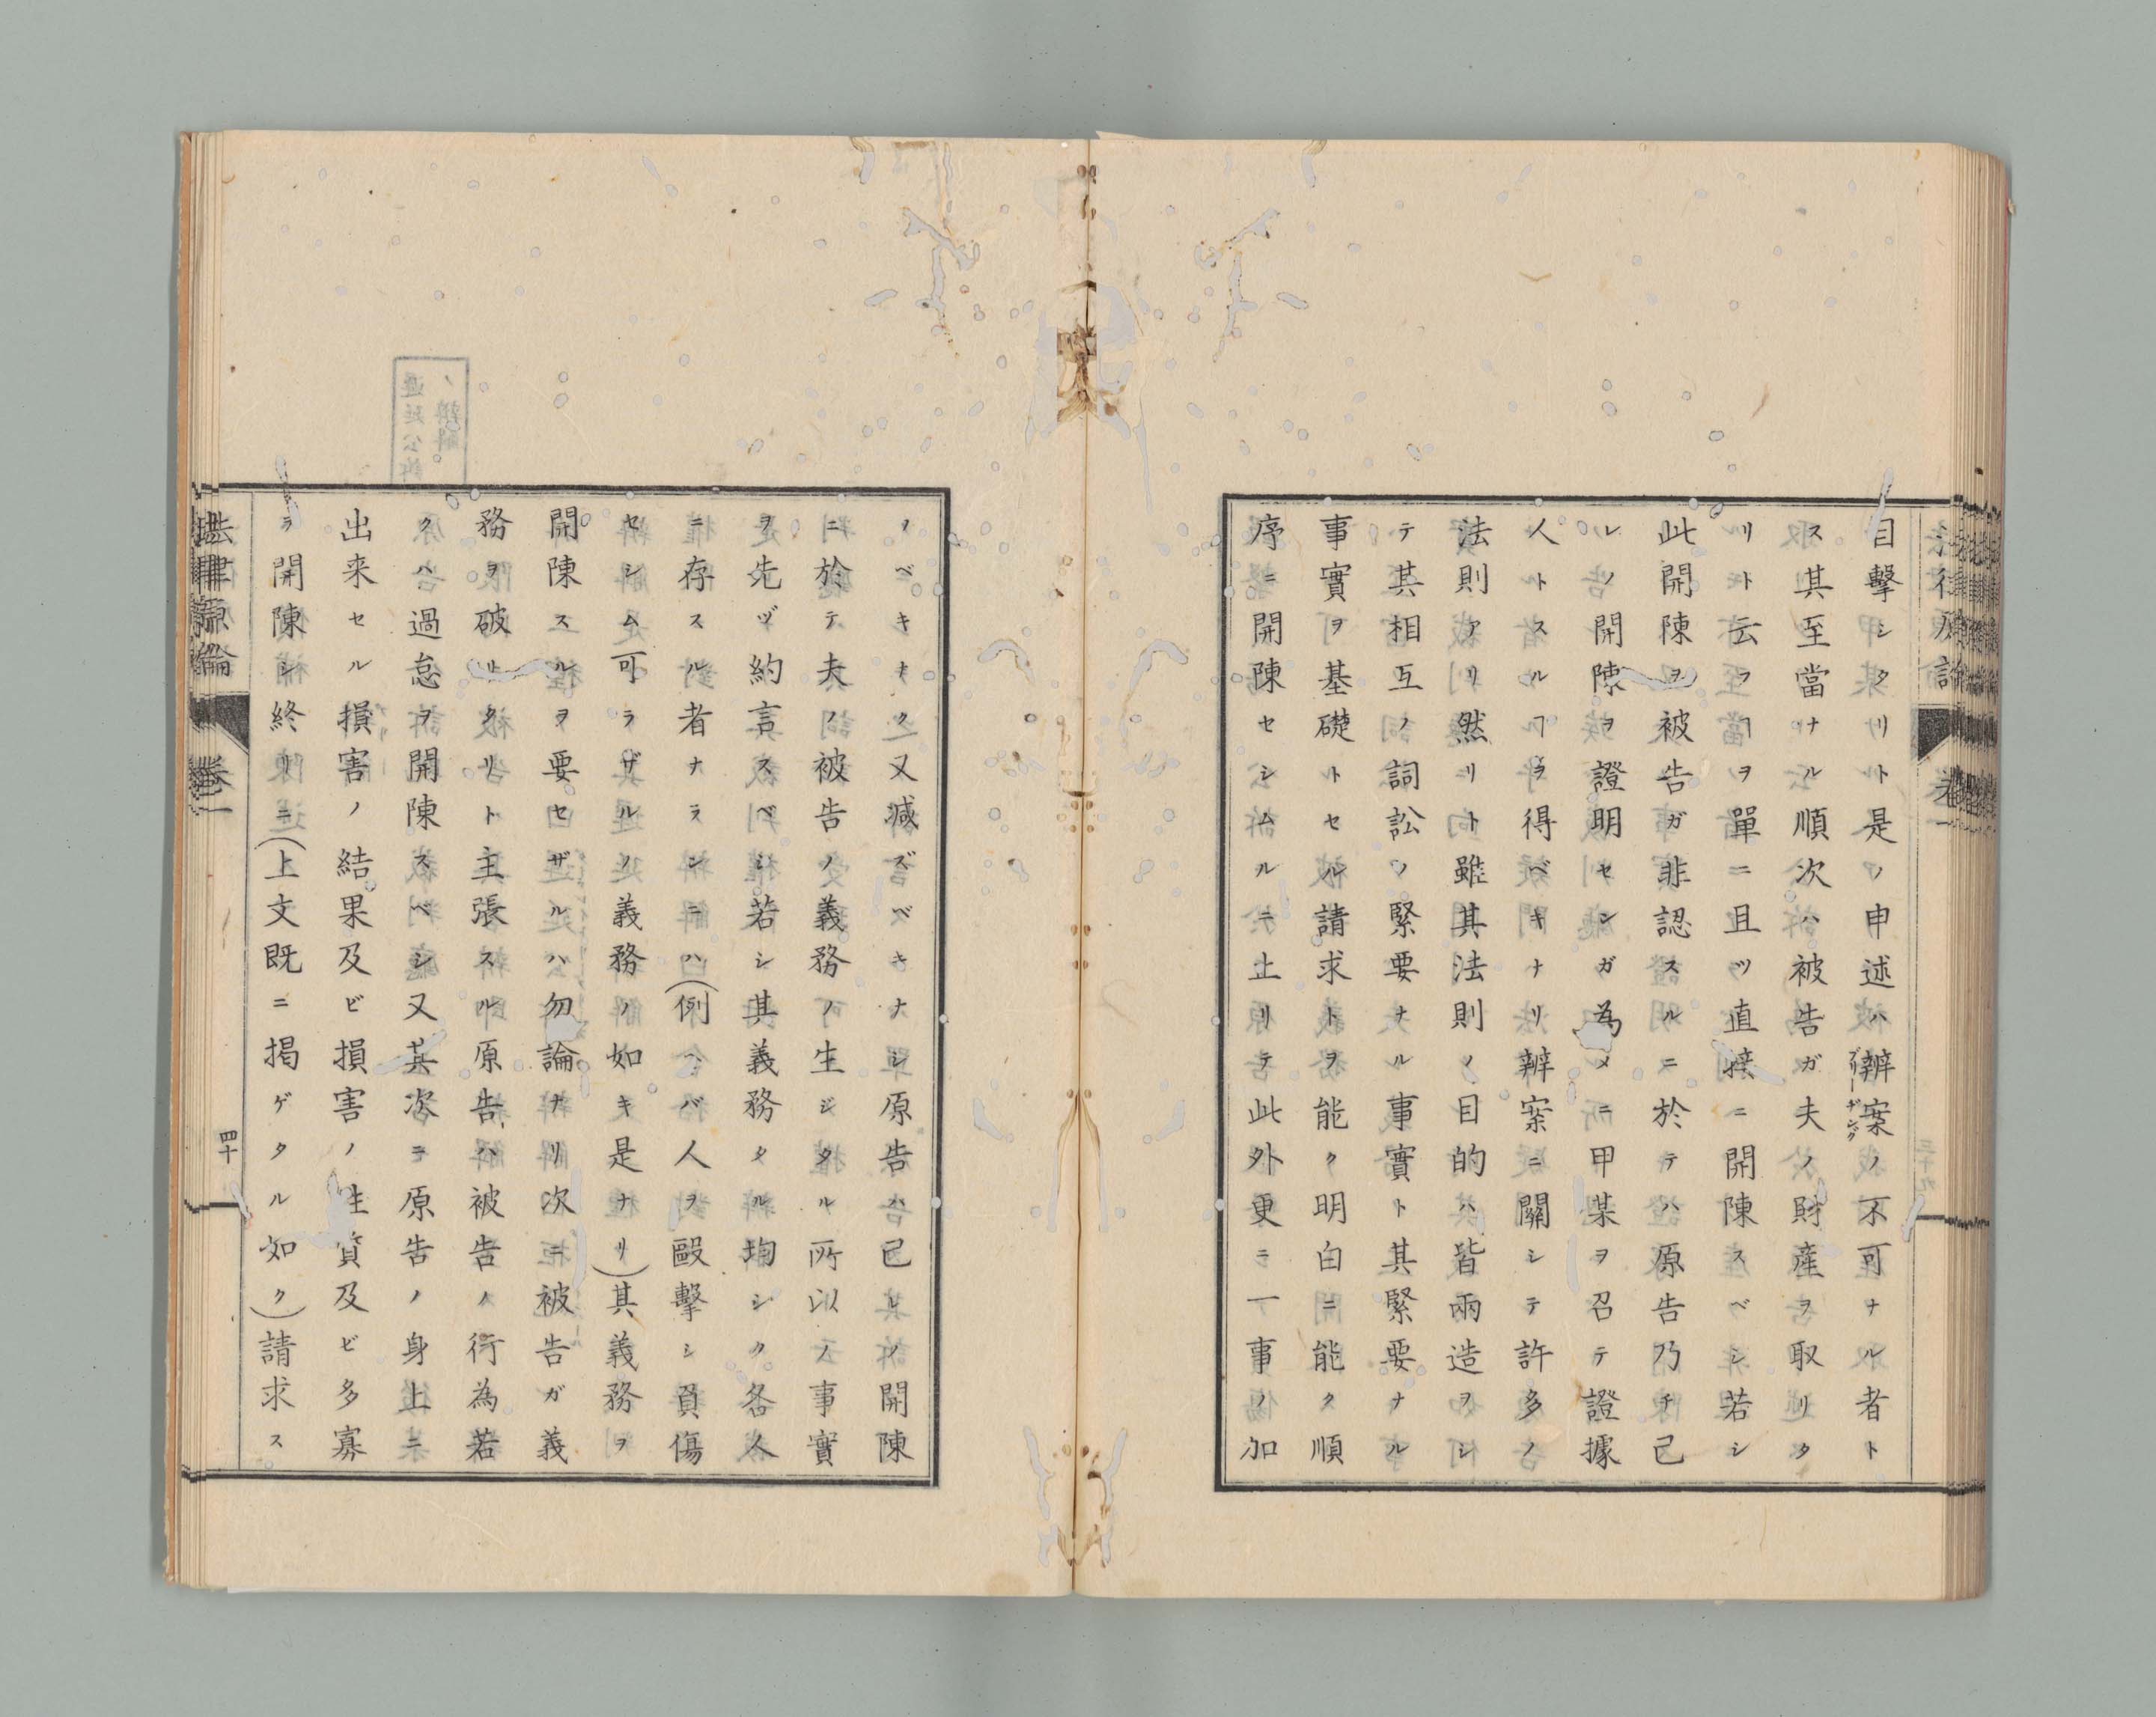 目擊シタリト是ノ申述ハ辨案ノ不可ナル者ト
プリーヂング
ス其至當ナル順次ハ被告ガ夫ノ財産ヲ取リタ
リト云フヿヲ單ニ且ツ直接ニ開陳スベシ若シ
此開陳ヲ被告ガ非認スルニ於テハ原告乃チ己
レノ開陳ヲ證明センガ為メニ甲某ヲ召テ證據
人トスルヿヲ得ベキナリ辨案ニ關シテ許多ノ
法則アリ然リト雖其法則ノ目的ハ皆兩造ヲシ
テ其相互ノ詞訟ノ緊要ナル事實ト其緊要ナル
事實ヲ基礎トセル請求トヲ能ク明白ニ能ク順
序ニ開陳セシムルニ止リテ此外更ニ一事ノ加
フベキナク又減ズベキナシ原告ハ己レノ開陳
ニ於テ夫ノ被告ノ義務ノ生ジタル所以ノ事實
ヲ先ヅ約言スベシ若シ其義務タル均シク各人
ニ存スル者ナランニハ(例ヘバ人ヲ毆擊シ負傷
セシム可ラザルノ義務ノ如キ是ナリ)其義務ヲ
開陳スルヲ要セザルハ勿論ナリ次ニ被告ガ義
務ヲ破リタリト主張スル原告ハ被告ノ行為若
クハ過怠ヲ開陳スベシ又其次ニ原告ノ身上ニ
出来セル損害ノ結果及ビ損害ノ性質及ビ多寡
ヲ開陳シ終リニ(上文既ニ掲ゲタル如ク)請求ス
法律原論 卷一
四十